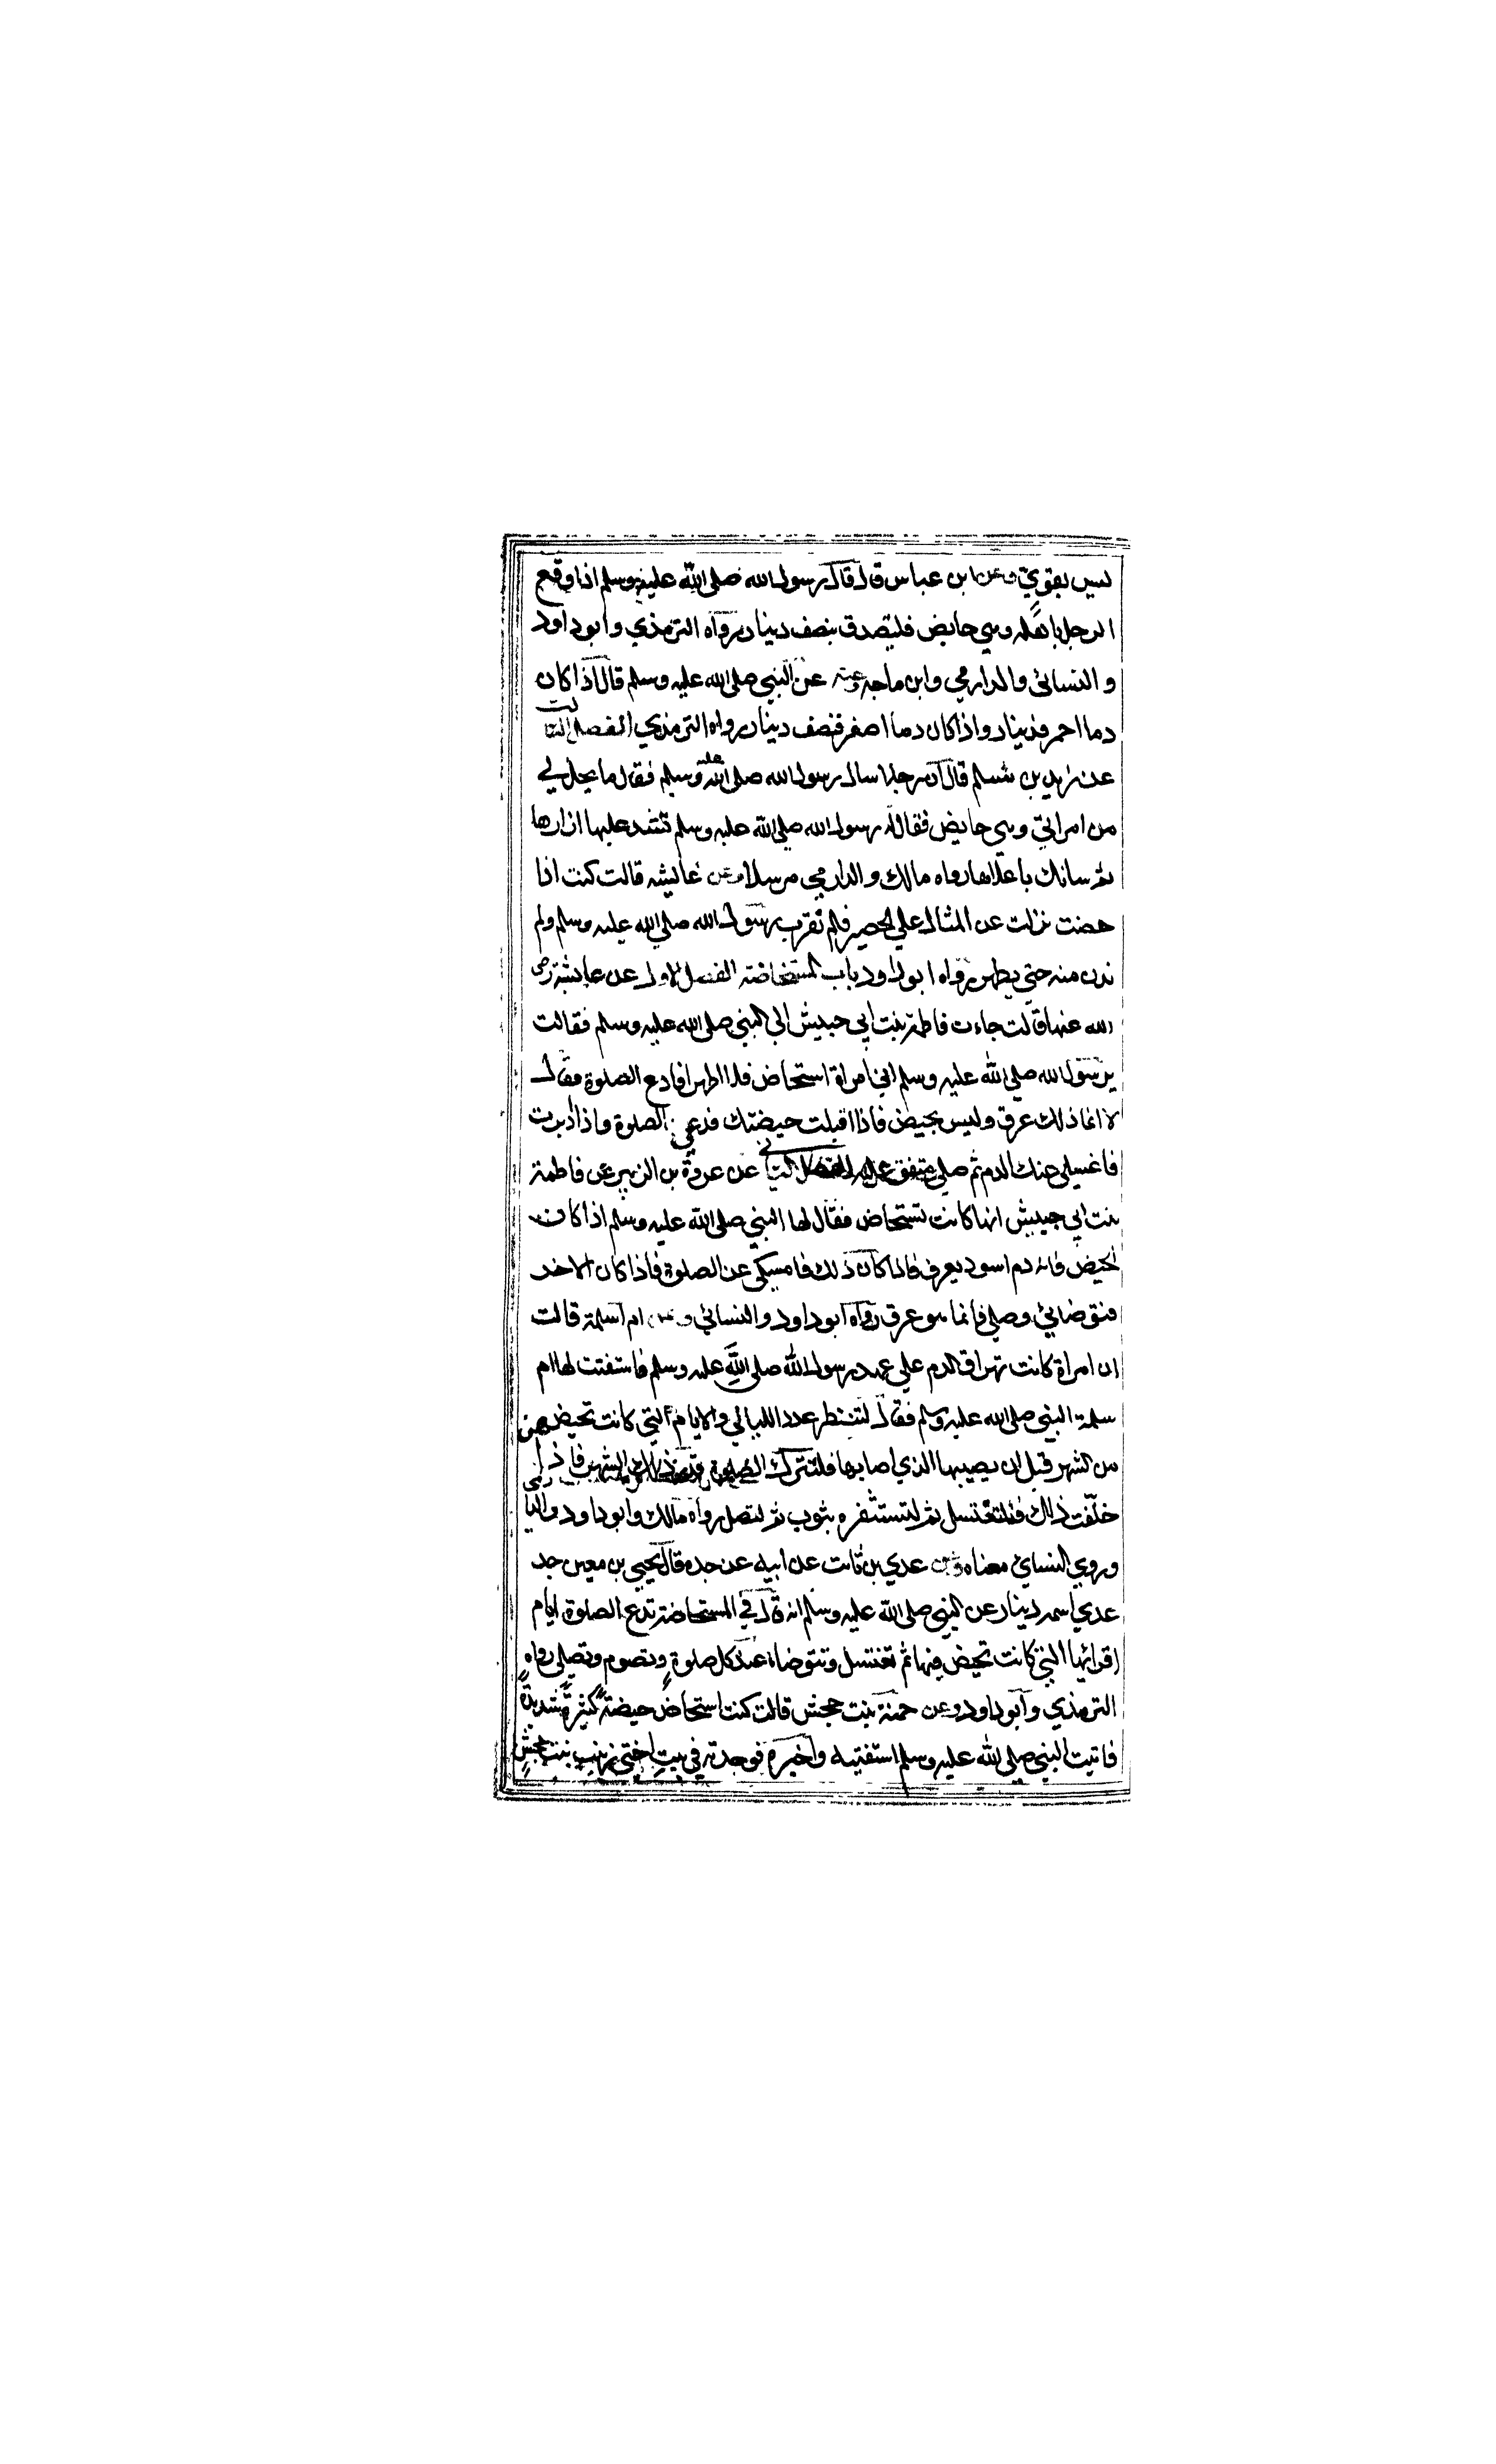 ليس بقوي وعن ابن عباس قال قال رسول الله صلى الله عليه وسلم اذا وقع
الرجل باهله وهي حايض فليتصدق بنصف دينار رواه الترمذي وابو داود
والنسائي والدارمي وابن ماجه وعنه عن النبي صلى الله عليه وسلم قال اذا كان
دما احمر فدينار واذا كان دما اصفر فنصف دينار رواه الترمذي الفصل الثالث
عن زيد بن اسلم قال ان رجلا سال رسول الله صلى الله عليه وسلم فقال ما يحل لي
من امراتي وهي حايض فقال له رسول الله صلى الله عليه وسلم تشد عليها ازارها
ثم شانك باعلاها رواه مالك والدارمي مرسلا وعن عايشه قالت كنت اذا
حضت نزلت عن المثال علي الحصير فلم نقرب رسول الله صلى الله عليه وسلم ولم
ندن منه حتي يطهر رواه ابو داود باب المستحاضة الفصل الاول عن عايشة رضي
الله عنها قالت جاءت فاطمة بنت ابي حبيش الي النبي صلى الله عليه وسلم فقالت
يرسول الله صلي الله عليه وسلم اني امراة استحاض فلا اطهر افادع الصلوة فقال
لا انما ذلك عرق وليس بحيض فاذا اقبلت حيضتك فدعي الصلوة واذا ادبرت
فاغسلي عنك الدم ثم صلي متفق عليه الفصل الثاني عن عروة بن الزبير عن فاطمة
بنت ابي حبيش انها كانت تستحاض فقال لها النبي صلى الله عليه وسلم اذا كان
الحيض فانه دم اسود يعرف فاذا كان ذلك فامسكي عن الصلوة فاذا كان الاخر
فتوضائي وصلي فانما هو عرق رواه ابو داود والنسائي وعن ام سلمة قالت
ان امراة كانت تهراق الدم علي عهد رسول الله صلى الله عليه وسلم فاستفتت لها ام
سلمة النبي صلى الله عليه وسلم فقال لتنظر عدد الليالي والايام التي كانت تحيض هن
من الشهر قبل ان يصيبها الذي اصابها فلتترك الصلوة قدر ذلك من الشهر فاذا
خلفت ذلك فلتغتسل ثم لتستثفره بثوب ثم لتصل رواه مالك وابو داود والدارمي
وروي النساي معناه وعن عدي بن ثابت عن ابيه عن جده قال يحيي بن معين جد
عدي اسمه دينار عن النبي صلى الله عليه وسلم انه قال في المستحاضة تدع الصلوة ايام
اقرائها التي كانت تحيض فيها ثم تغتسل وتتوضاء عند كل صلوة وتصوم وتصلي رواه
الترمذي وابو داود وعن حمنة بنت جحش قالت كنت استحاض حيضة كثيرة شديدة
فاتيت النبي صلى الله عليه وسلم استفتيه واخبره فوجدته في بيت اختي زينب بنت جحش